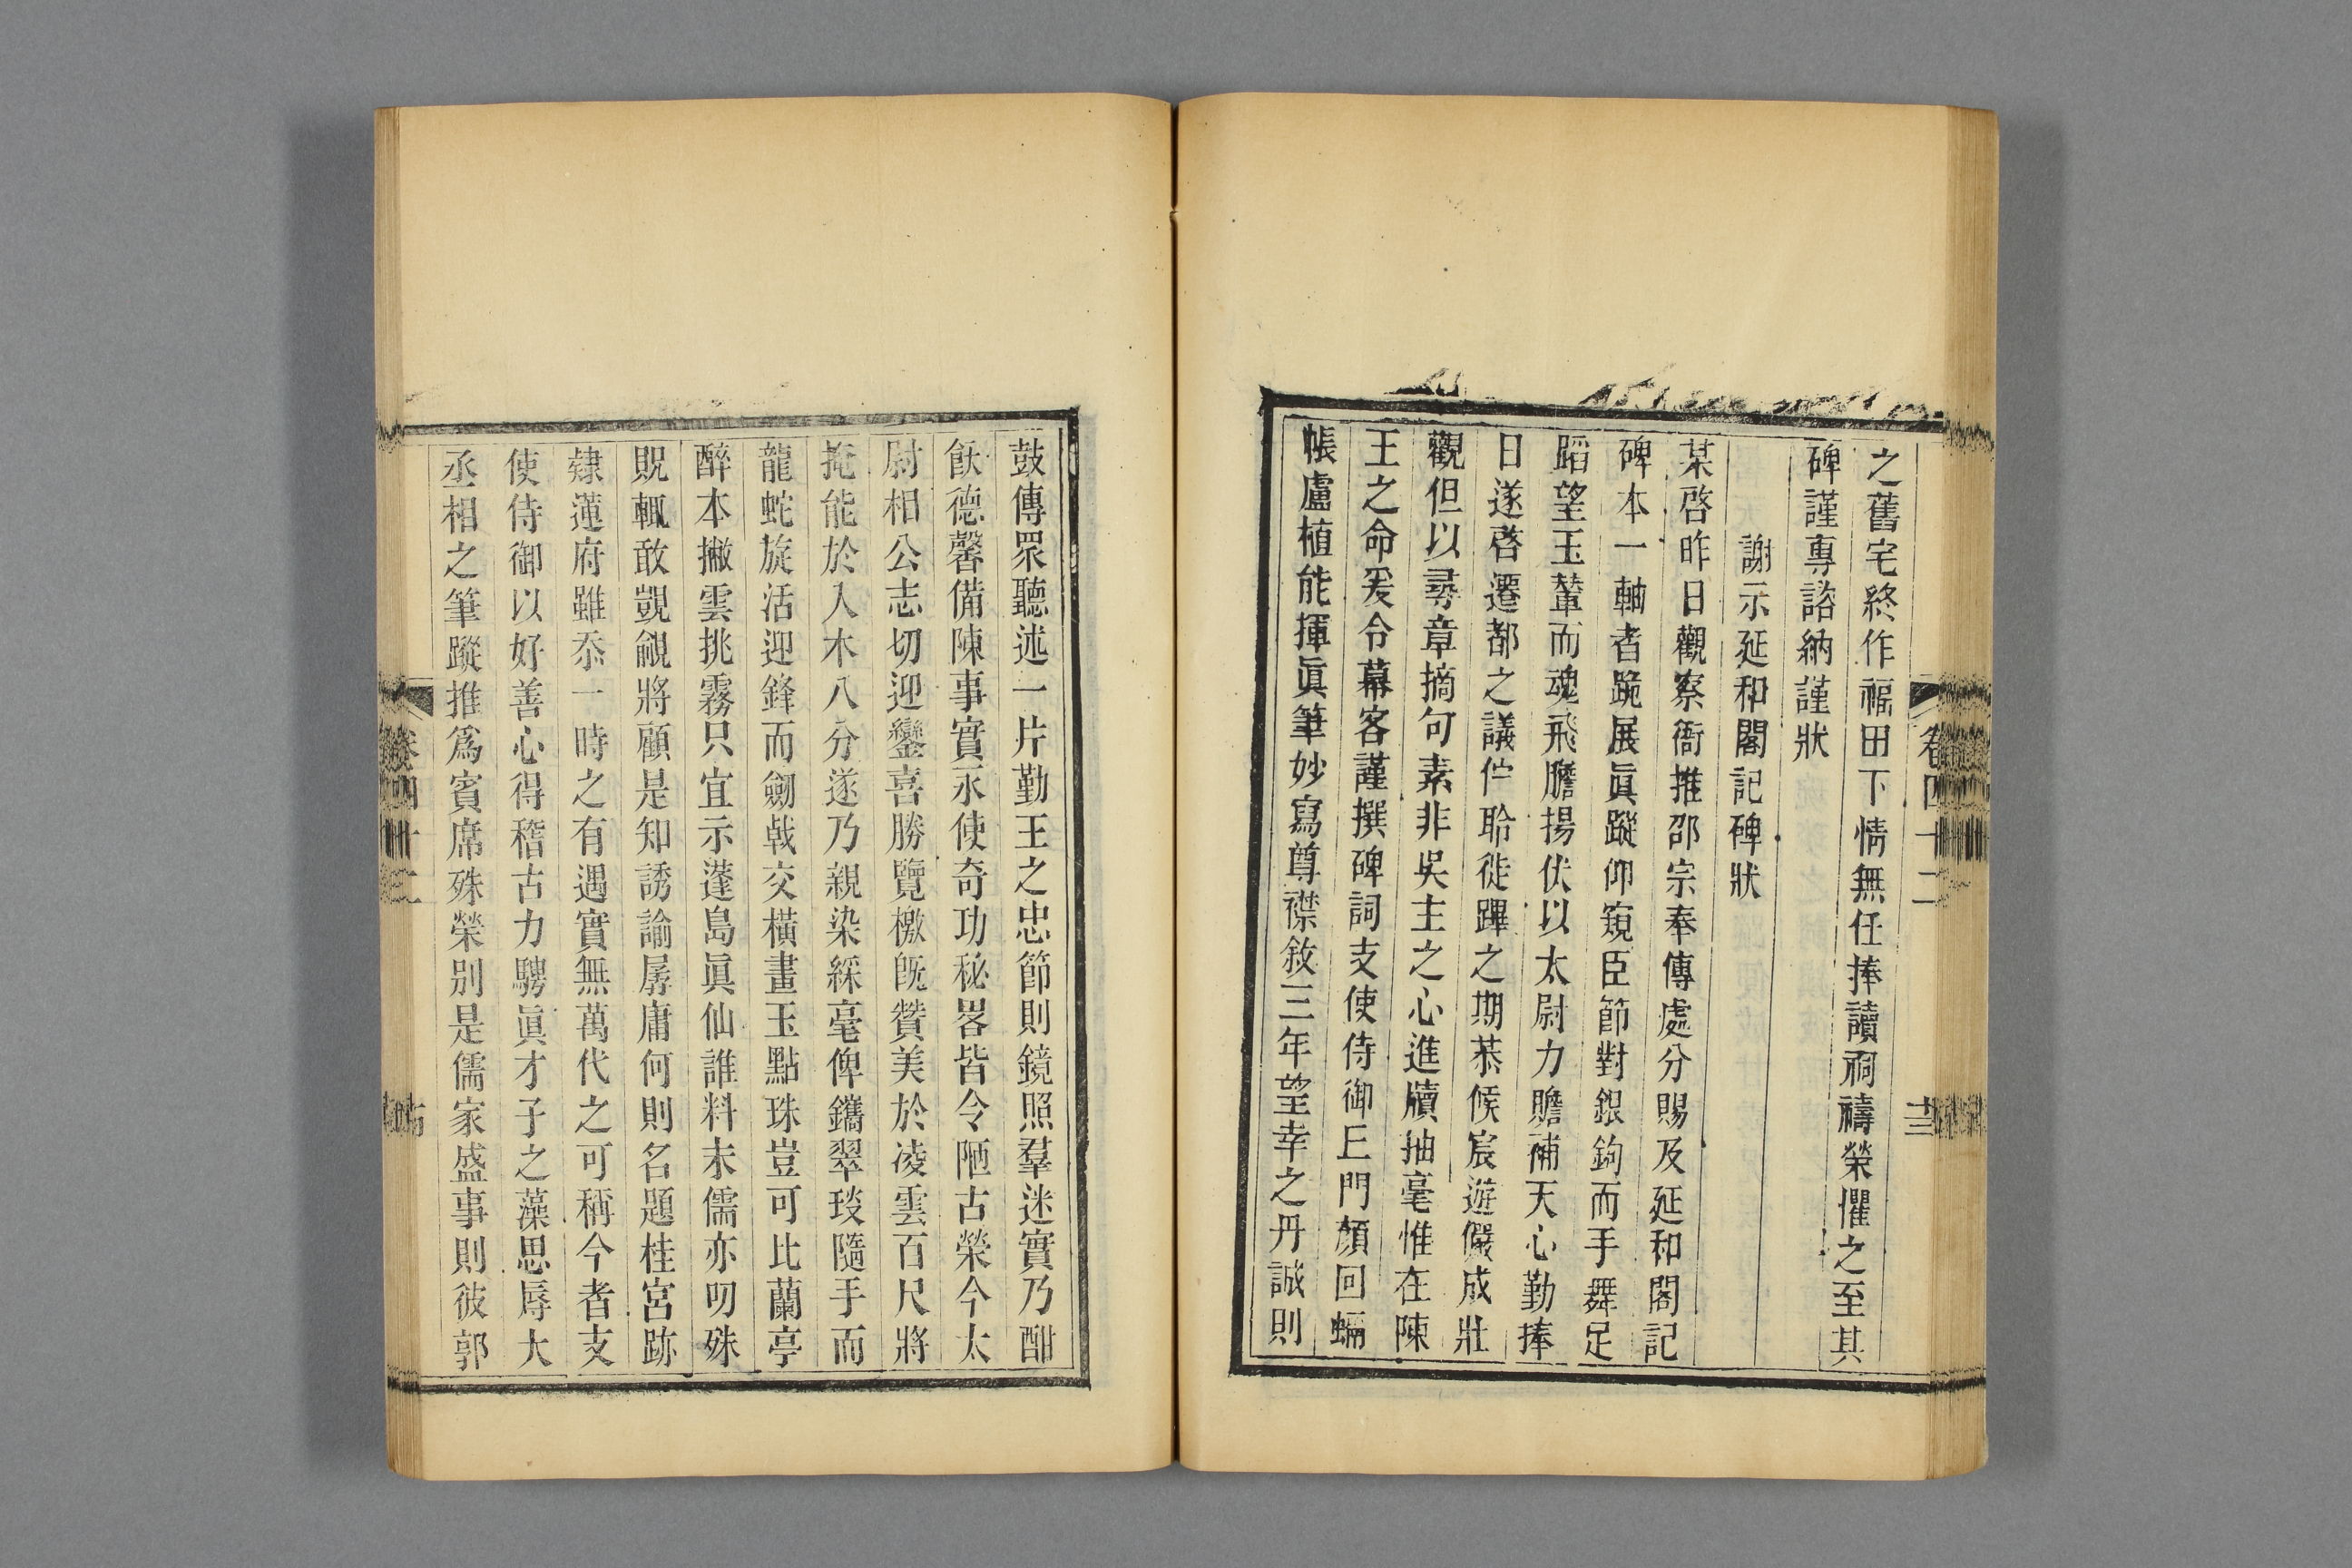 之舊宅終作福田下情無任捧讀祠禱榮懼之至其
碑謹專諮納謹狀
謝示延和閣記碑狀
某啓昨日觀察衙推邵宗奉傳處分賜及延和閣記
碑本一軸者跪展眞蹤仰窺臣節對銀鉤而手舞足
蹈望玉輦而魂飛膽揚伏以太尉力贍補天心勤捧
日遂啓遷都之議佇聆徙蹕之期恭候宸遊儼成壯
觀但以尋章摘句素非吳主之心進牘抽毫惟在陳
王之命爰令幕客謹撰碑詞支使侍御王門顏回蝙
帳盧植能揮眞筆妙寫尊襟敘三年望幸之丹誠則
卷四十二
十三
鼓傳眾聽述一片勤王之忠節則鏡照羣迷實乃酣
飫德馨備陳事實永使奇功秘畧皆令陋古榮今太
尉相公志切迎鑾喜勝覽檄旣贊美於凌雲百尺將
掩能於入木八分遂乃親染綵毫俾鐫翠琰隨手而
龍蛇旋活迎鋒而劒戟交橫畫玉點珠豈可比蘭亭
醉本撇雲挑霧只宜示蓬島眞仙誰料末儒亦叨殊
貺輒敢覬覦將顧是知誘諭孱庸何則名題桂宮跡
隸蓮府雖忝一時之有遇實無萬代之可稱今者支
使侍御以好善心得稽古力騁眞才子之藻思辱大
丞相之筆蹤推爲賓席殊榮別是儒家盛事則彼郭
卷四十二